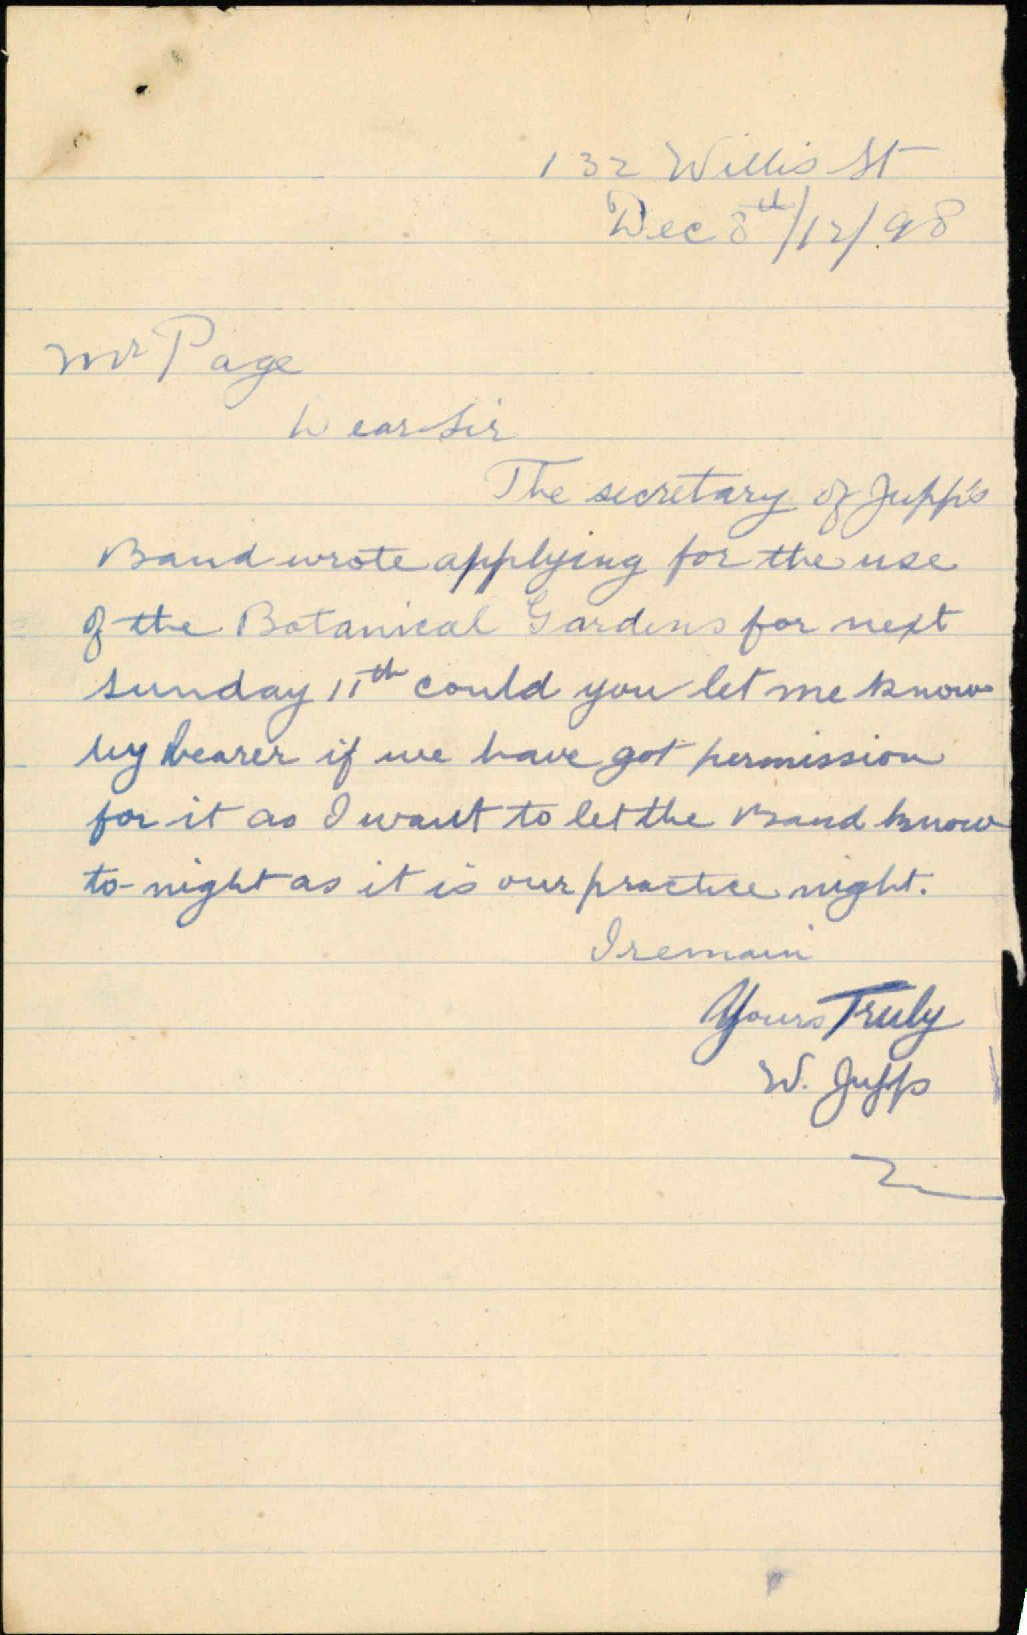 132 Willis St
Dec 8th/12/98
Mr Page
Dear Sir
The secretary of Jupp's
Band wrote applying for the use
of the Botanical Gardens for next
Sunday 11th could you let me know
by bearer if we have got permission
for it as I want to let the Band know
to-night as it is our practice night.
I remain
Yours Truly
W. Jupp